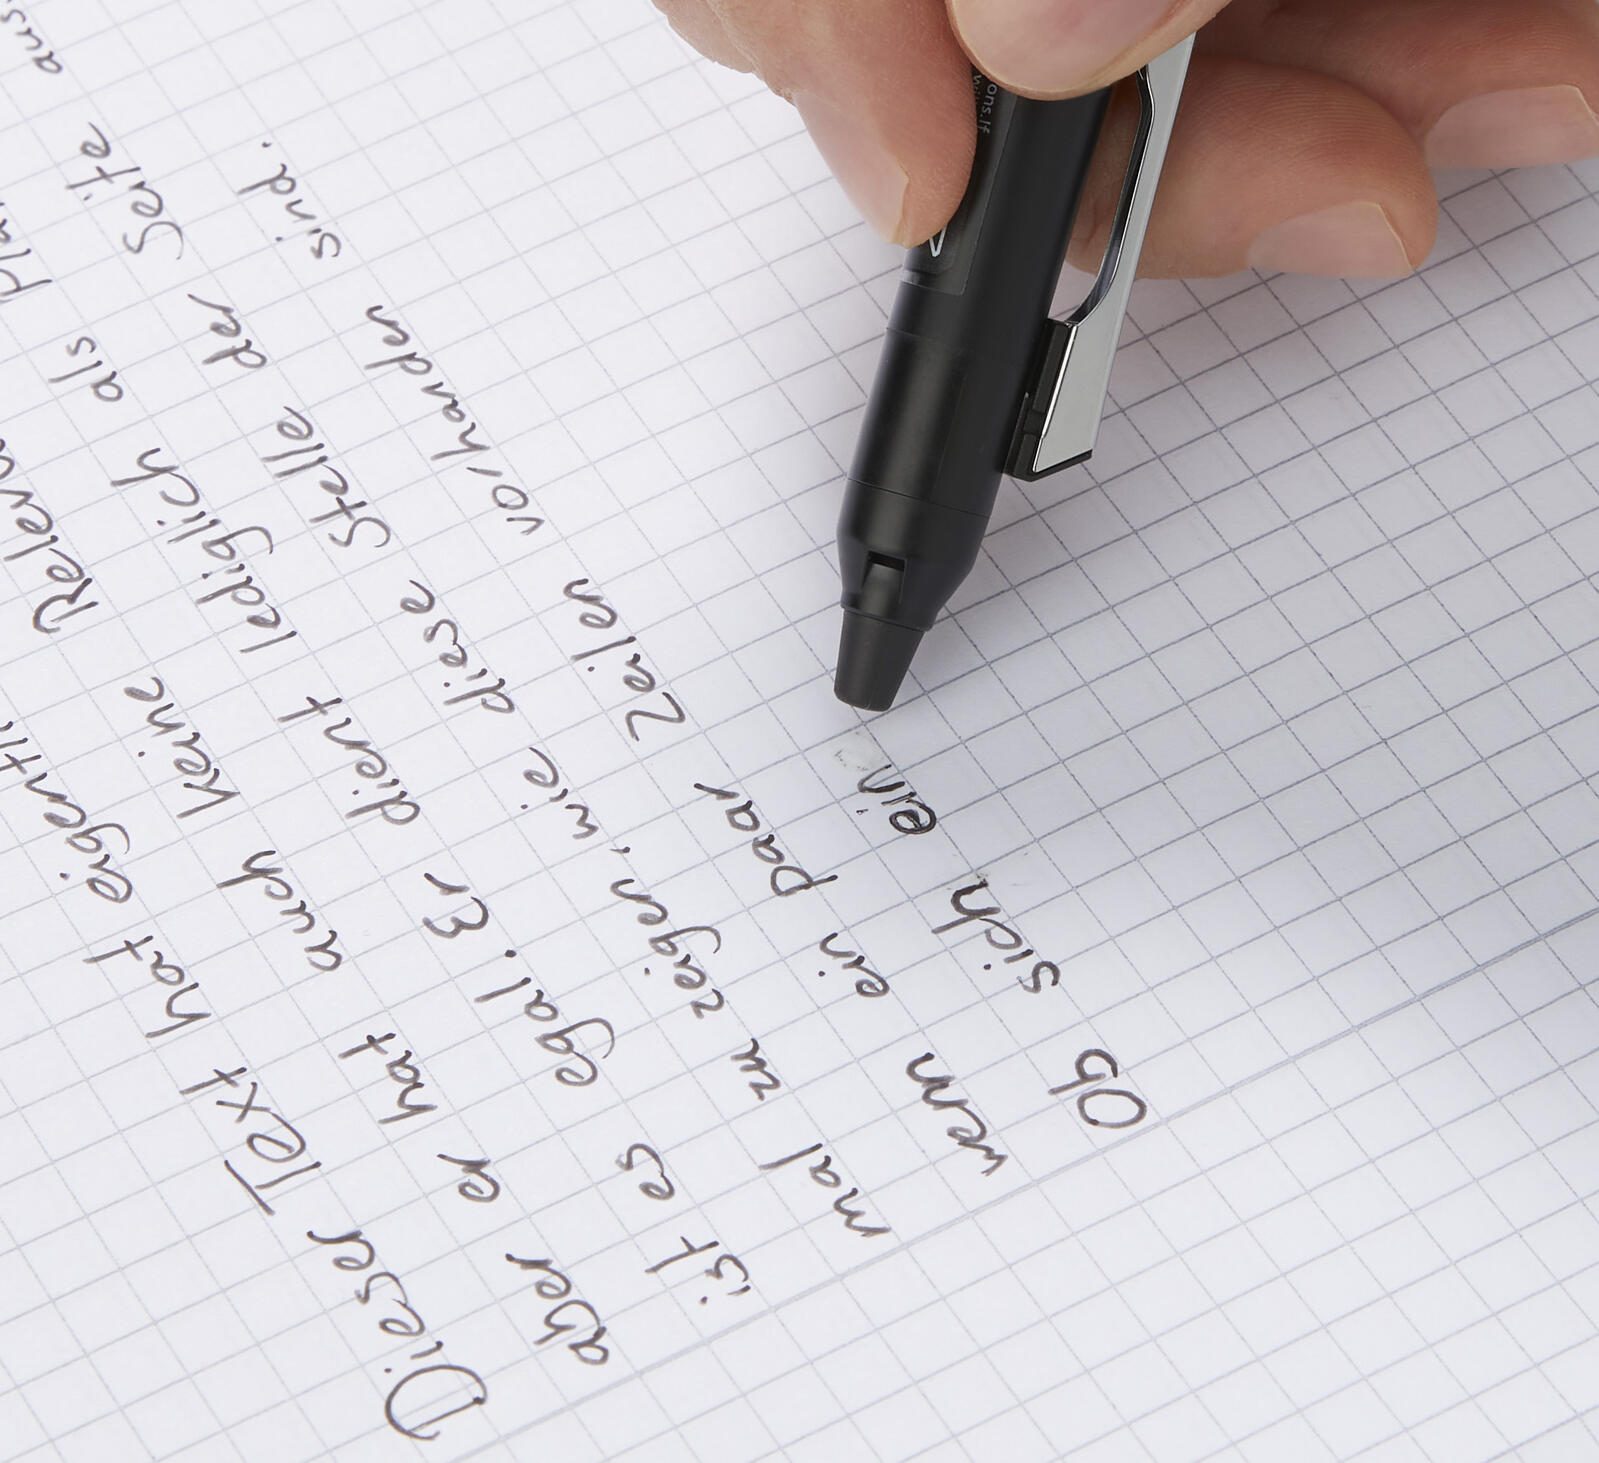 Dieser Text hat eigentl
aber er hat auch keine Releva
ist es egal. Er dient lediglich als Pla
mal zu zeigen, wie diese Stelle der Seite aus
wenn ein paar Zeilen vorhanden sind.
Ob sich ein